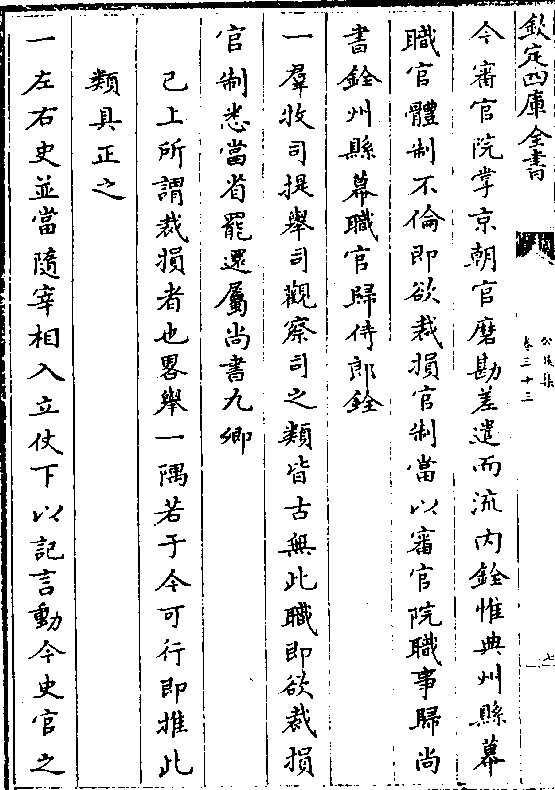 欽定四庫全書
公是集
卷三十三
今審官院掌京朝官磨勘差遣而流内銓惟典州縣幕
職官體制不倫即欲裁損官制當以審官院職事歸尚
書銓州縣幕職官歸侍郎銓
一羣牧司提舉司觀察司之類皆古無此職即欲裁損
官制悉當省罷還屬尚書九卿
已上所謂裁損者也畧舉一隅若于今可行即推此
類具正之
一左右史並當隨宰相入立仗下以記言動今史官之